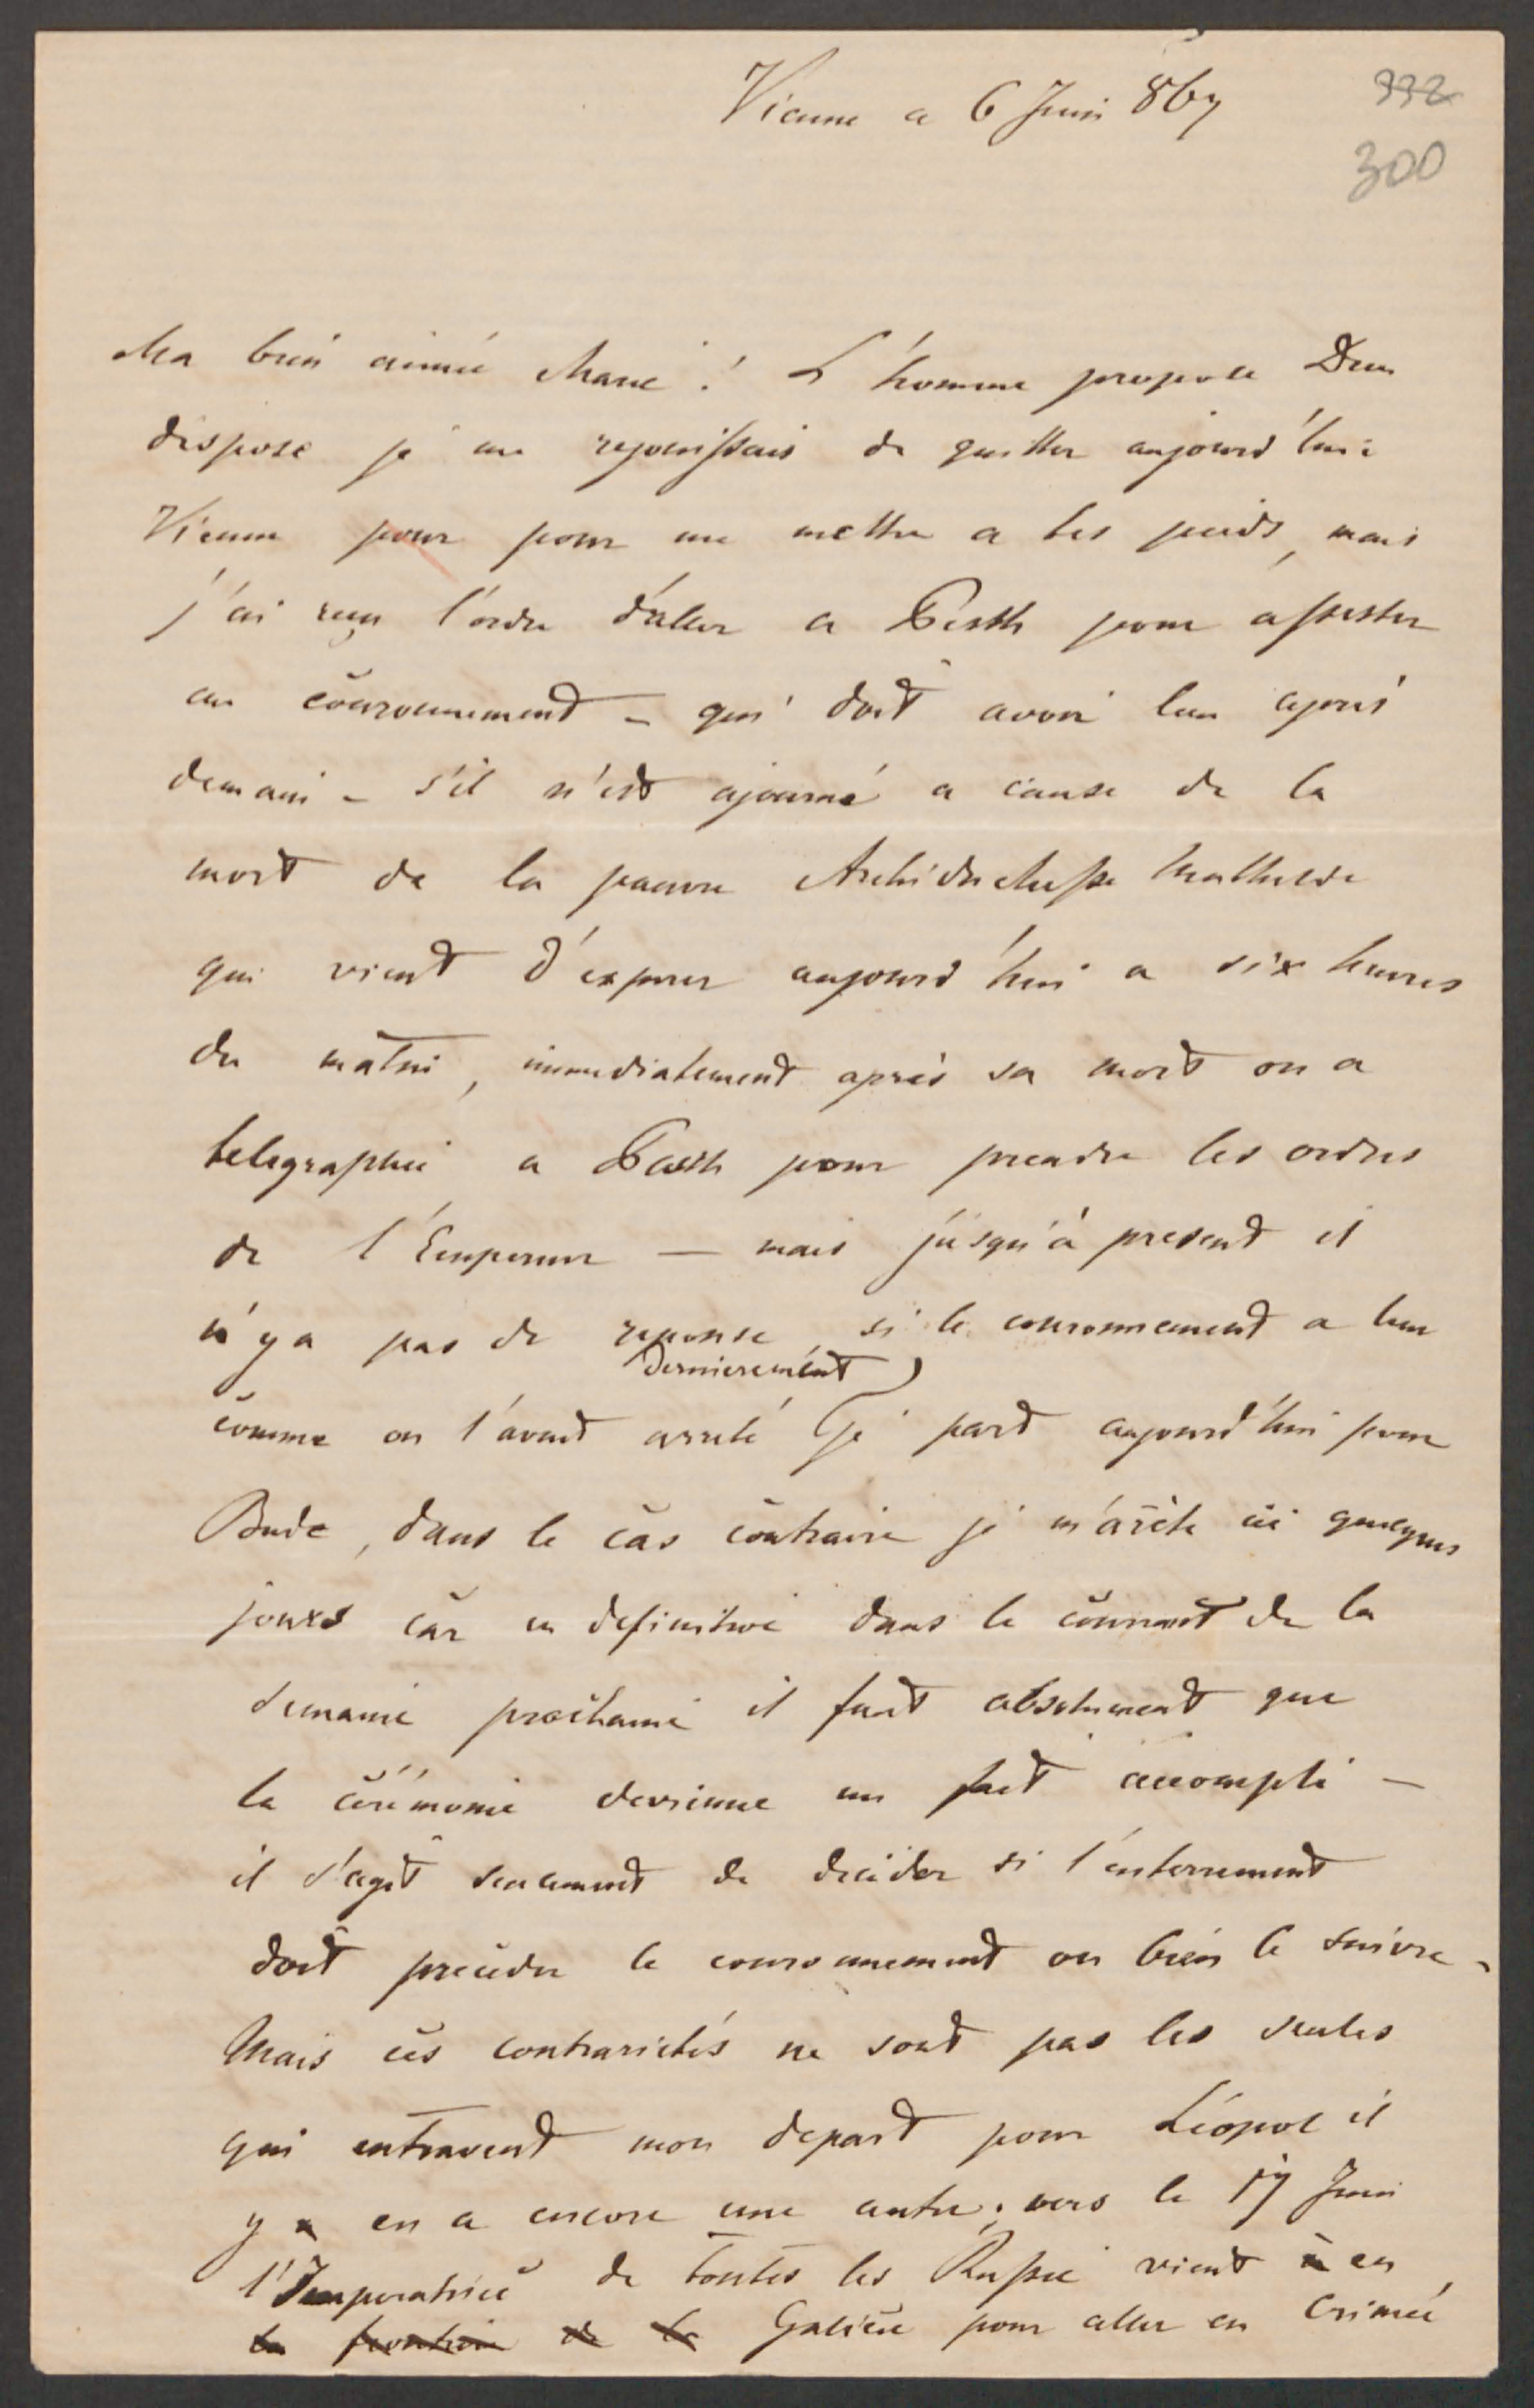 Vienne a 6 Juin 867
332
300
Ma bien aimée Marie ! L'homme propose Dieu
dispose je me rejouissais de quitter aujourd'hui
Vienne pour pour me mettre a tes pieds, mais
j'ai reçu l'ordre d'aller a Pesth pour assister
au couronnement – qui doit avoir lieu après
demain – s'il n'est ajourné a cause de la
mort de la pauvre Archiduchesse Mathilde
qui vient d'expirer aujourd'hui a six heures
du matin, immediatement après sa mort on a
telegraphié a Pesth pour prendre les ordres
de l'Empereur — mais jusqu'à present il
n'y a pas de reponse, si le couronnement a lieu
dernierement
comme on l'avait arreté je part aujourd'hui pour
Bude, dans le cas contraire je m'arète ici quelques
jours car en definitive dans le courrant de la
semaine prochaine il faut absolument que
la cérémonie devienne un fait accompli —
il s'agit seulement de decider si l'enterrement
doit preceder le couronnement ou bien le suivre.
Mais ces contrarietés ne sont pas les seules
qui entravent mon depart pour Léopol il
y en a encore une autre; vers le 17 Juin
l'Imperatrice de toutes les Russie vient en
la frontière de la Galicie pour aller en Crimée